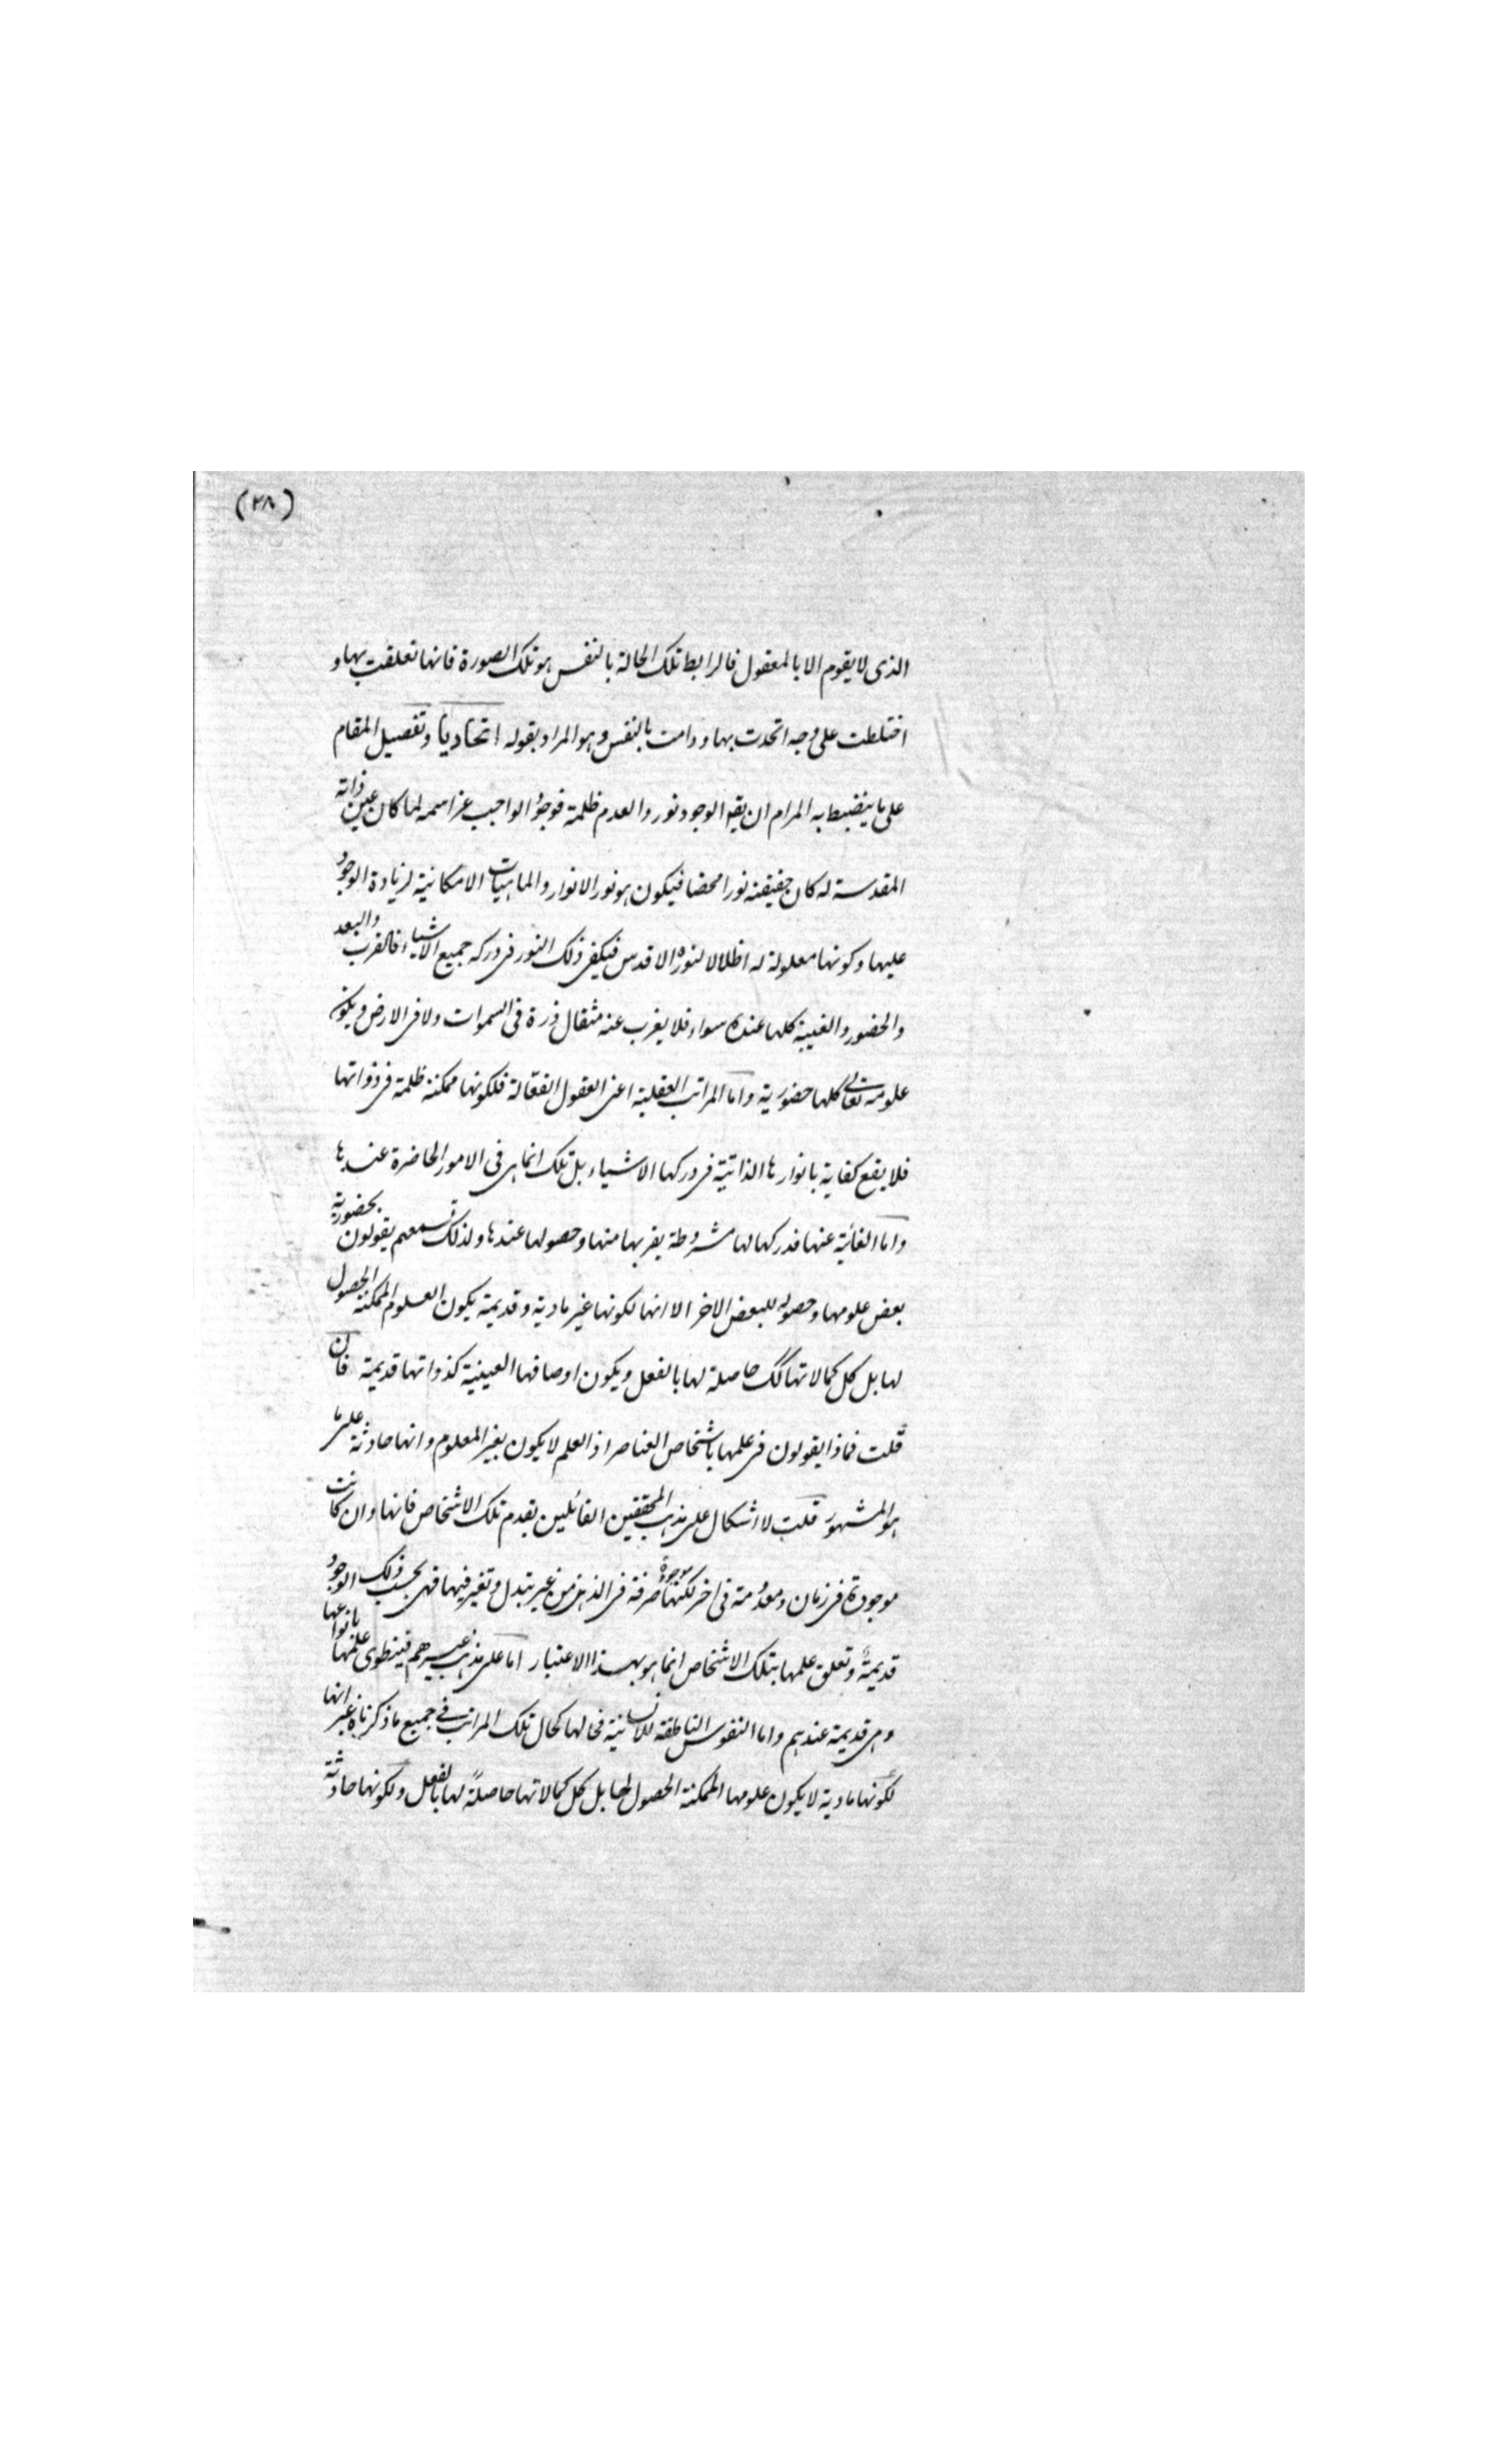 (٢٨)
الذى لا يقوم الا بالمعقول فالرابط تلك الحالة بالنفس هو تلك الصورة فانها تعلقت بها و
اختلطت على وجه اتحدت بها ودامت بالنفس وهو المراد بقوله اتحاديا وتفصيل المقام
على ما ينضبط به المرام ان يقم الوجود نور والعدم ظلمة فوجود الواجب عز اسمه لما كان عين ذاته
المقدسة له كان حقيقته نورا محضا فيكون هو نور الانوار والماهيات الامكانية لزيادة الوجود
عليها وكونها معلولة له اظلالا لنوره الاقدس فيكفى ذلك النور فى دركه جميع الاشياء فالقرب والبعد
والحضور والغيبة كلها عنده سواء فلا يغرب عنه مثقال ذرة فى السموات ولا فى الارض ويكون
علومه تعالى كلها حضورية واما المراتب العقلية اعنى العقول الفعّالة فلكونها ممكنة ظلمة فى ذواتها
فلا يقع كفاية بانوارها الذاتية فى دركها الاشياء بل تلك انما هى فى الامور الحاضرة عندها
واما الغائبة عنها فدركها لها مشروطة بقربها منها وحصولها عندها ولذلك تسمعهم يقولون بحضورية
بعض علومها وحصوله للبعض الاخر الا انها لكونها غير مادية وقديمة يكون العلوم الممكنة الحصول
لها بل كل كمالاتها كك حاصلة لها بالفعل ويكون اوصافها العينية كذواتها قديمة فان
قلت فماذا يقولون فى علمها باشخاص العناصر اذ العلم لا يكون بغير المعلوم وانها حادثة على ما
هو المشهور قلت لا اشكال على مذهب المحققين القائلين بقدم تلك الاشخاص فانها وان كانت
موجودة فى زمان ومعدومة فى اخر لكنها موجودة صرفة فى الذهن من غير تبدل وتغير فيها فهى بحسب ذلك الوجود
قديمة وتعلق علمها بتلك الاشخاص انما هو بهذا الاعتبار اما على مذهب غيرهم فينطوى علمها بانواعها
وهى قديمة عندهم واما النفوس الناطقة للانسانية فحالها كحال تلك المراتب فى جميع ما ذكرناه غير انها
لكونها مادية لا يكون علومها الممكنة الحصول لها بل كل كمالاتها حاصلةً لها بالفعل ولكونها حادثة